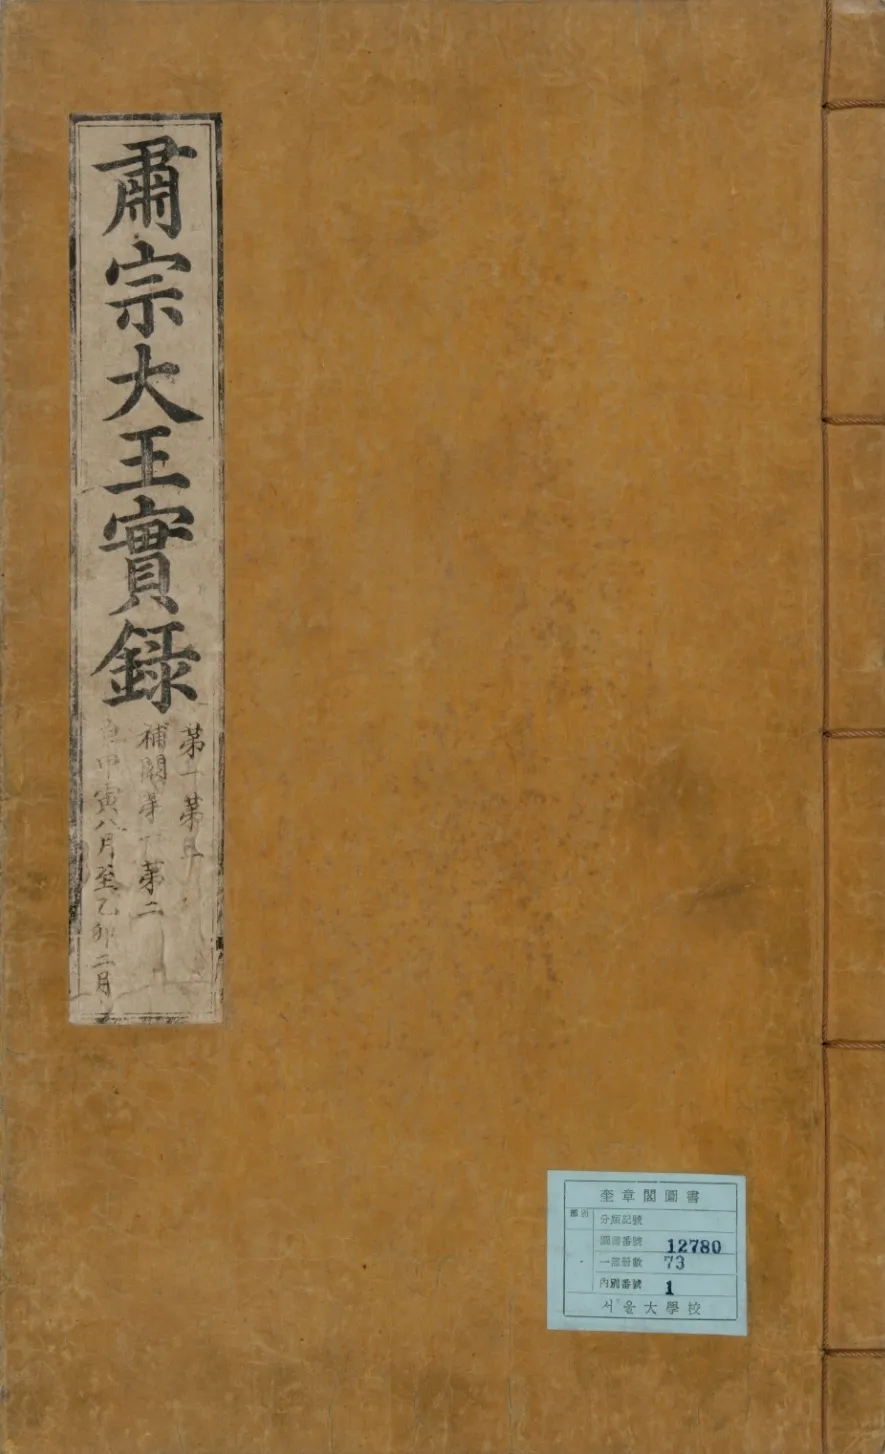 肅宗大王實錄
第一 第二
補闕第一 第二
甲寅八月至乙卯二月
奎章閣圖書
部別
分類記號
圖書番號 12780
一部冊數 73
內別番號 1
서울大學校